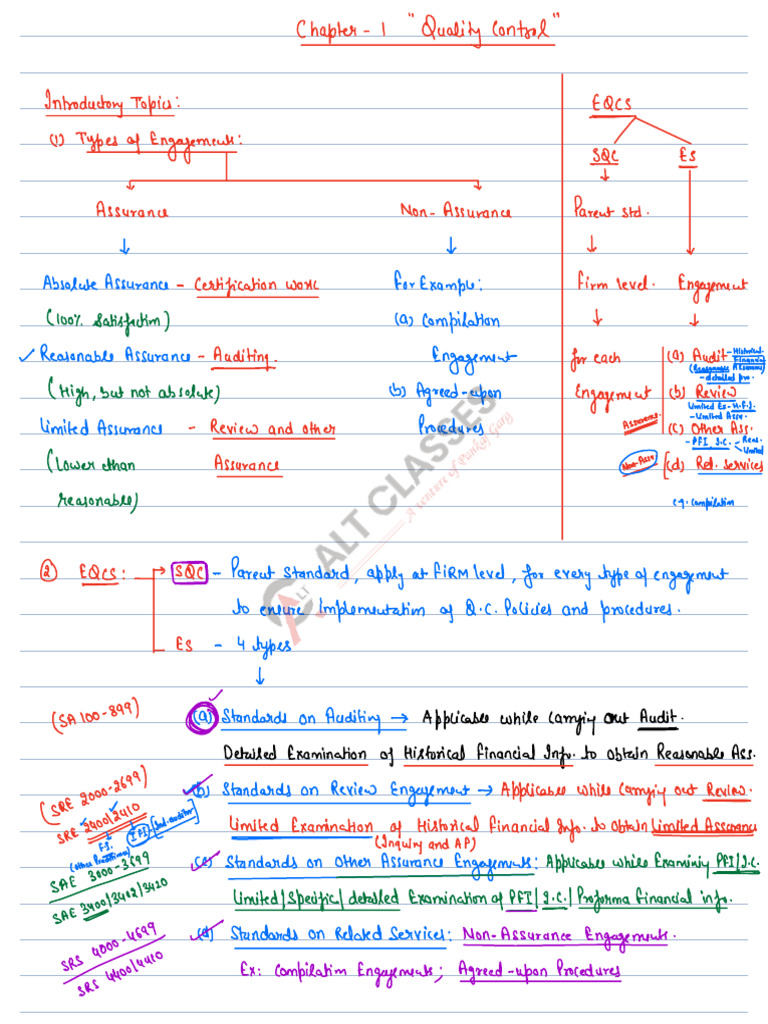 Chapter - 1 "Quality Control"
Introductory Topics:
(1) Types of Engagement:
Assurance
Non-Assurance
Absolute Assurance - Certification work
(100% Satisfaction)
Reasonable Assurance - Auditing
(High, but not absolute)
Limited Assurance - Review and other
(lower than Assurance
reasonable)
For Example:
(a) Compilation
Engagement
(b) Agreed-upon
Procedures
EQCS
SQC ES
Parent Std.
Firm level. Engagement
for each
Engagement
(a) Audit - Historical
Financial
(Reasonable Assurance)
- detailed pro.
(b) Review
Limited Ex - H.F.I.
- Limited Assu.
Assurance
(c) Other Ass.
- PFI, I.C. - Reas.
Limited
Non-Assu (d) Rel. Services
eg. Compilation
ALT CLASSES
A venture of Pankaj Garg
ALT
(2) EQCS: SQC - Parent Standard, apply at FIRM level, for every type of engagement
to ensure Implementation of Q.C. Policies and procedures.
ES - 4 types
(SA 100-899) (a) Standards on Auditing → Applicable while Carryiy out Audit.
Detailed Examination of Historical Financial Info. to obtain Reasonable Ass.
(SRE 2000-2699) (b) Standards on Review Engagement → Applicable while Carryiy out Review.
SRE 2400/2410
F.S.
IFI (Ind-auditor)
Limited Examination of Historical Financial Info. to Obtain Limited Assurance
(Inquiry and AP)
SAE 3000-3699 (c) Standards on Other Assurance Engagements: Applicable while Examiniy PFI/I.C.
SAE 3400/3402/3420 Limited/Specific/detailed Examination of PFI/I.C./Proforma Financial info.
SRS 4000-4699 (d) Standards on Related Services: Non-Assurance Engagements.
SRS 4400/4410 Ex: Compilation Engagements; Agreed-upon Procedures